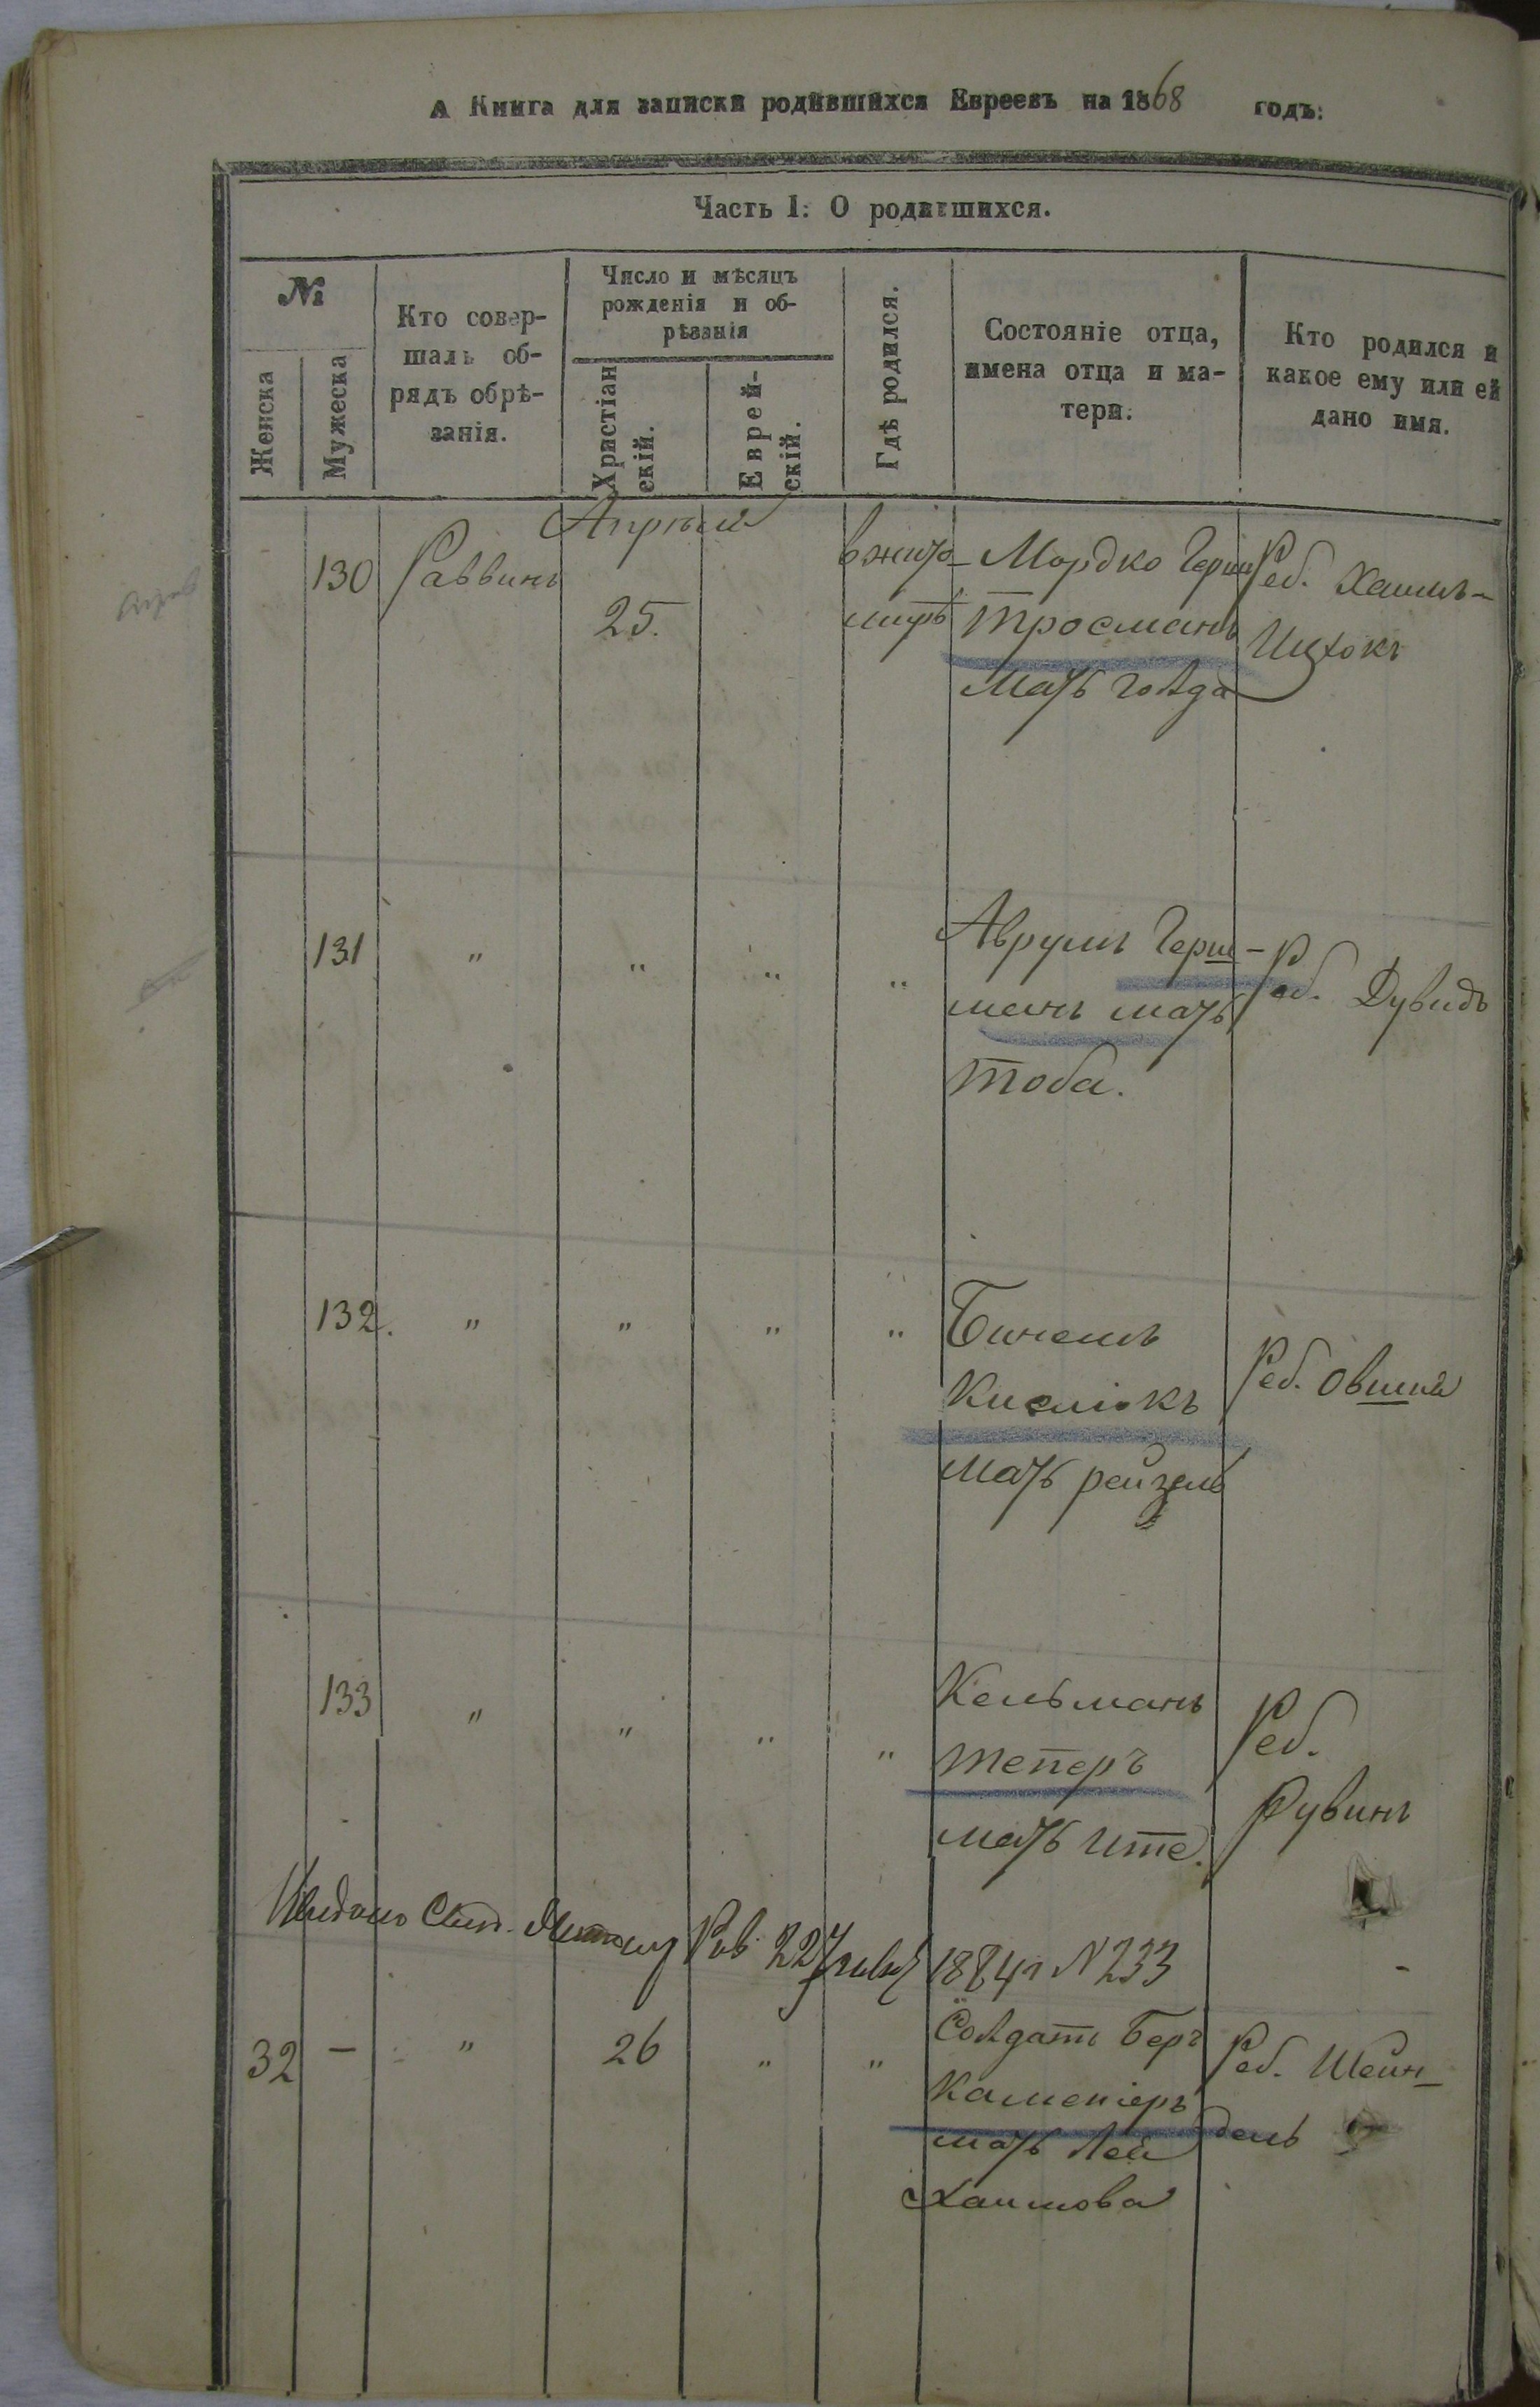 А Книга для записки родившихся Евреевъ на 1868 годъ:
Часть I: О родившихся.
№
Женска
Мужеска
Кто совер-
шалъ об-
рядъ обрѣ-
занія.
Число и мѣсяцъ
рожденія и об-
рѣзанія
Христіан
скій.
Еврей-
скій.
Гдѣ родился.
Состояніе отца,
имена отца и ма-
тери.
Кто родился и
какое ему или ей
дано имя.
Апрѣль
130 Раввинъ 25. в жито-
мирѣ
Мордко Герш
Тросманъ
мать голда
Реб. Хаимъ-
Ицхокъ
131 " " " "
Аврумъ Герш-
манъ мать
Тоба.
Реб. Дувидъ
132. " " " "
Бинемъ
Кислюкъ
мать рейзель
Реб. Овшия
133 " " " "
Кельманъ
Теперъ
мать Ите.
Реб.
Рувинъ
Выдано Рав. 22 1884 г №233
32 — " 26 " "
Солдатъ Беръ
Каменіеръ
мать Лея
Хаимова
Реб. Шейн-
дель